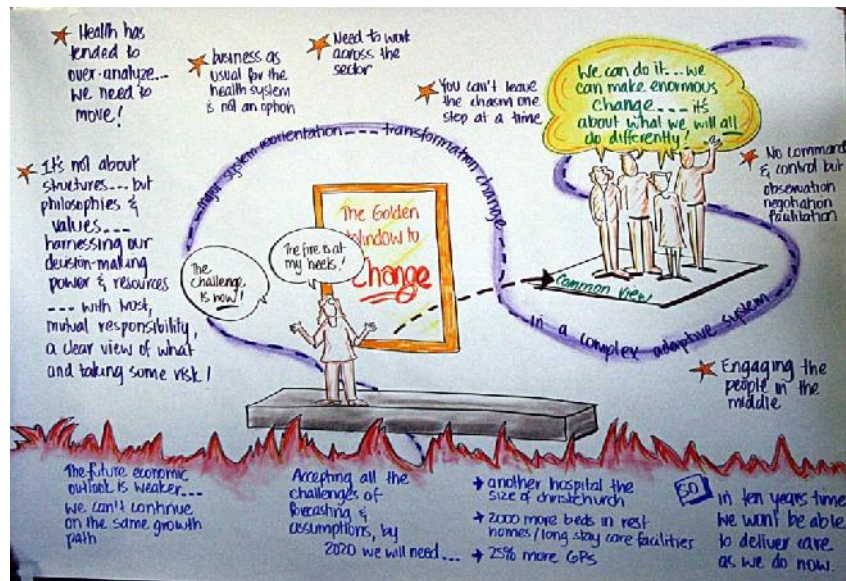 Health has
tended to
over-analyze...
we need to
move!
business as
usual for the
health system
is not an option
Need to work
across the
sector
You can't leave
the chasm one
step at a time
We can do it... we
can make enormous
change.... it's
about what we will all
do differently!
No command
& control but
observation
negotiation
facilitation
It's not about
structures.... but
philosophies &
values....
harnessing our
decision-making
power & resources
.... with trust,
mutual responsibility,
a clear view of what
and taking some risk!
major system reorientation --- transformation change
in a complex adaptive system
The Golden
Window to
Change
The
challenge
is now!
The fire is at
my heels!
Common view
Engaging the
people in the
middle
The future economic
outlook is weaker....
we can't continue
on the same growth
path
Accepting all the
challenges of
forecasting &
assumptions, by
2020 we will need....
→ another hospital the
size of christchurch
→ 2000 more beds in rest
homes/long stay care facilities
→ 25% more GPs
SO
in ten years time
we won't be able
to deliver care
as we do now.